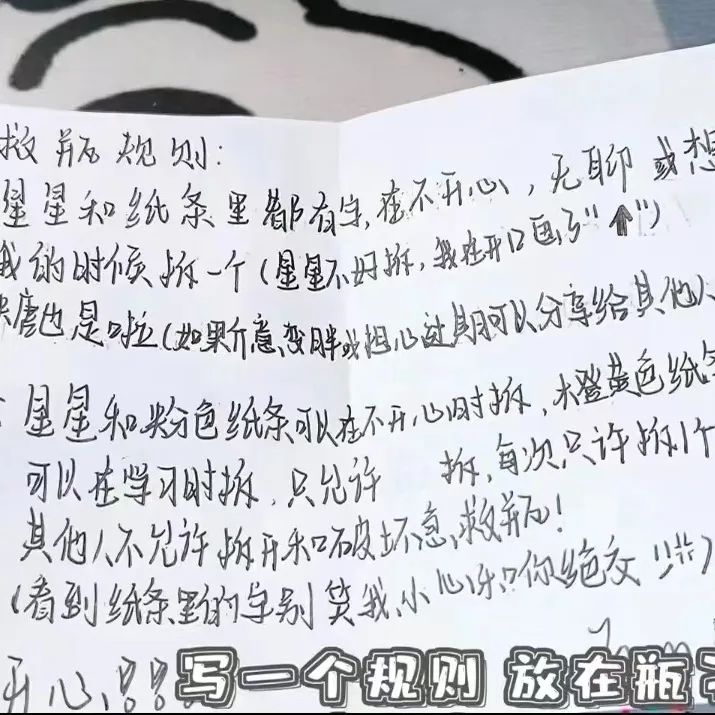 救瓶规则:
星星和纸条里都有字,在不开心,无聊或想
我的时候拆一个(星星不好拆,我在开口画了"⬆")
也是啦(如果介意变胖或担心过期可以分享给其他人
星星和粉色纸条可以在不开心时拆,橙黄色纸条
可以在学习时拆,只允许 拆,每次只许拆1个
其他人不允许拆开和破坏急救瓶!
(看到纸条里的字别笑我,小心和你绝交!!!)
开心
写一个规则 放在瓶子